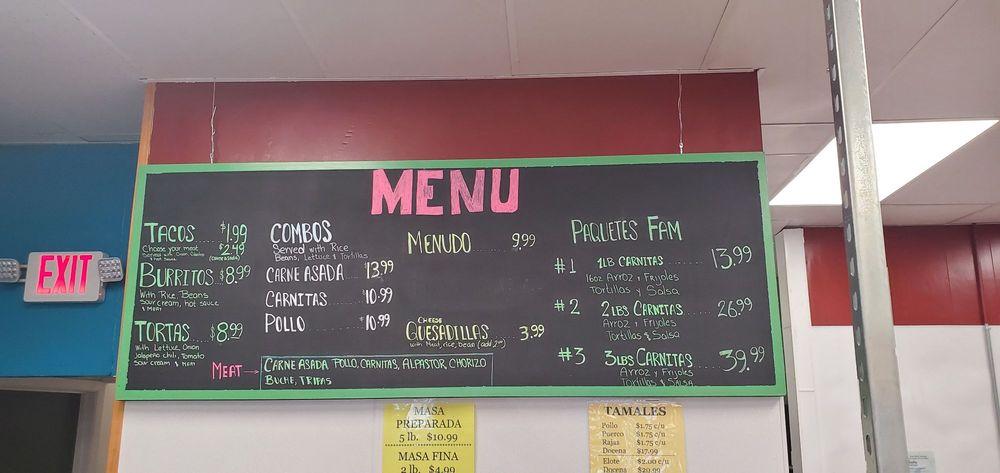 MENU
TACOS $1.99
Choose your meat $2.49
Served with Onion, Cilantro (Carne asada)
& Hot Sauce
BURRITOS $8.99
With Rice, Beans
Sour cream, hot sauce
& MEAT
TORTAS $8.99
With Lettuce, Onion
Jalapeño chili, Tomato
Sour cream & MEAT
COMBOS
Served with Rice
Beans, Lettuce & Tortillas
CARNE ASADA $13.99
CARNITAS $10.99
POLLO $10.99
MENUDO 9.99
CHEESE
QUESADILLAS 3.99
with Meat, rice, bean (add 2.00)
MEAT → CARNE ASADA, POLLO, CARNITAS, ALPASTOR, CHORIZO
BUCHE, TRIPAS
PAQUETES FAM
#1 1LB CARNITAS 13.99
16oz Arroz y Frijoles
Tortillas y Salsa
#2 2LBS CARNITAS 26.99
Arroz y Frijoles
Tortillas & Salsa
#3 3LBS CARNITAS 39.99
Arroz y Frijoles
Tortillas & Salsa
EXIT
MASA
PREPARADA
5 lb. $10.99
MASA FINA
2 lb. $4.99
TAMALES
Pollo $1.75 c/u
Puerco $1.75 c/u
Rajas $1.75 c/u
Docena $17.99
Elote $2.00 c/u
Docena $20.99